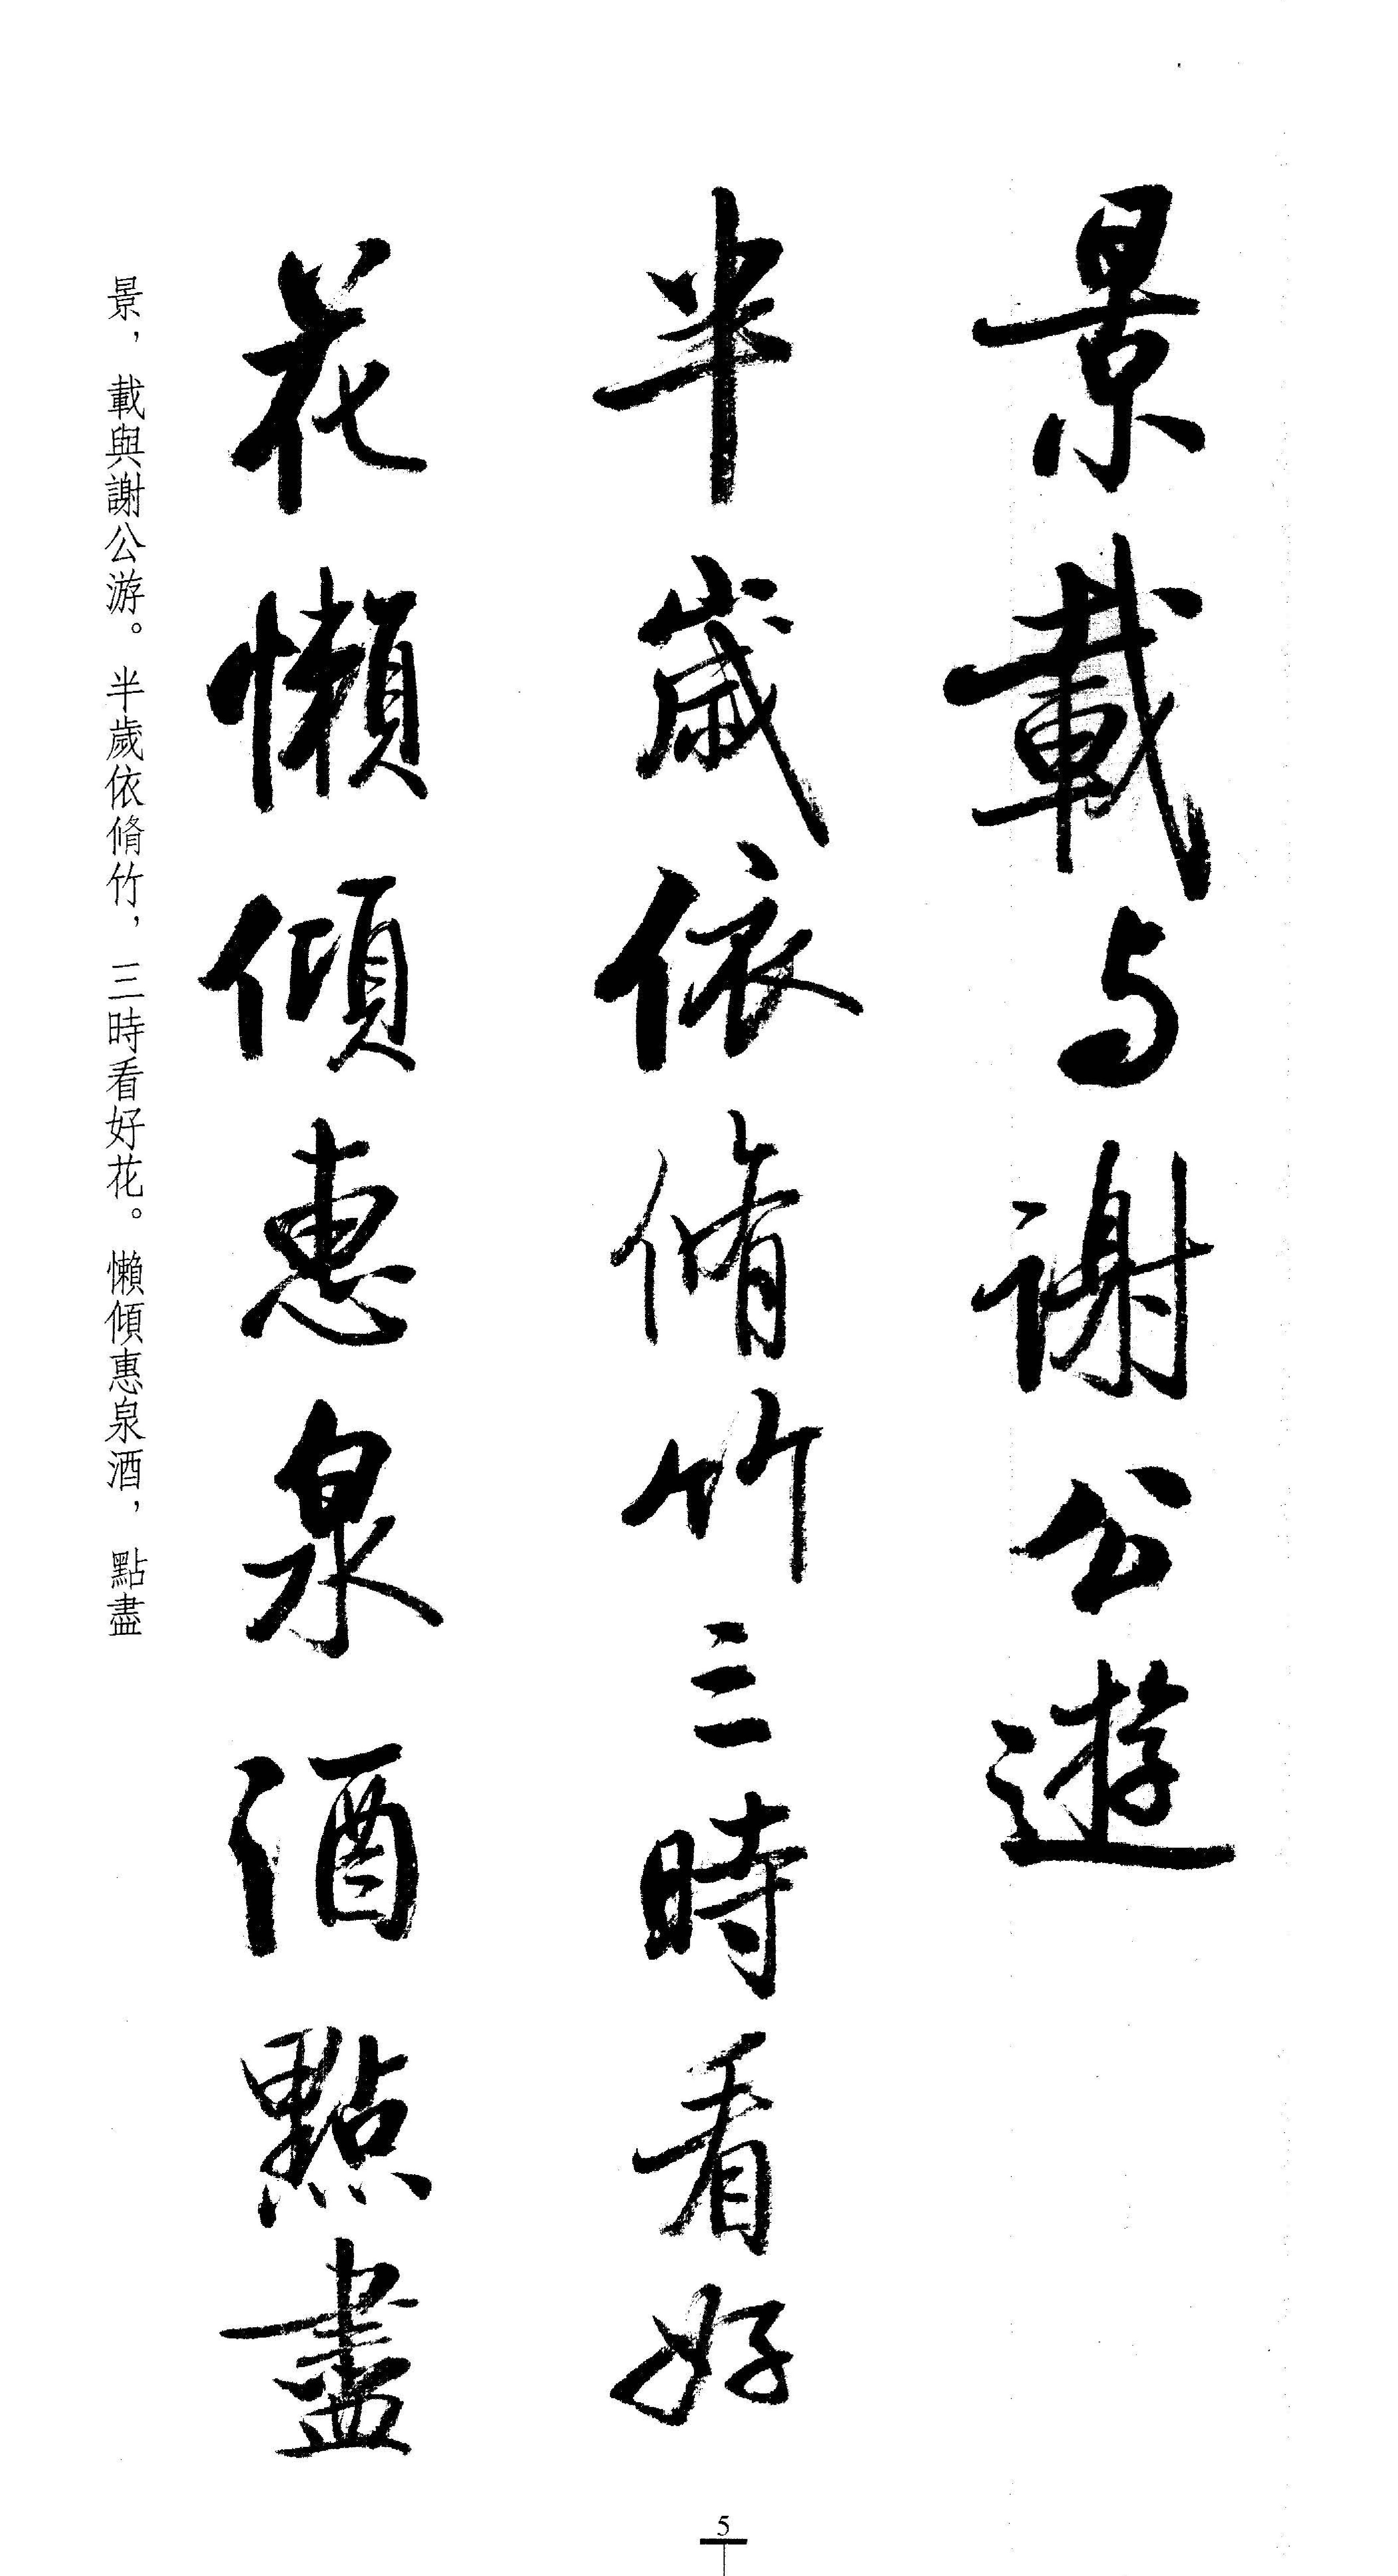 景載与謝公遊
半歲依脩竹三時看好
花懶傾惠泉酒點盡
景，載與謝公游。半歲依脩竹，三時看好花。懶傾惠泉酒，點盡
5